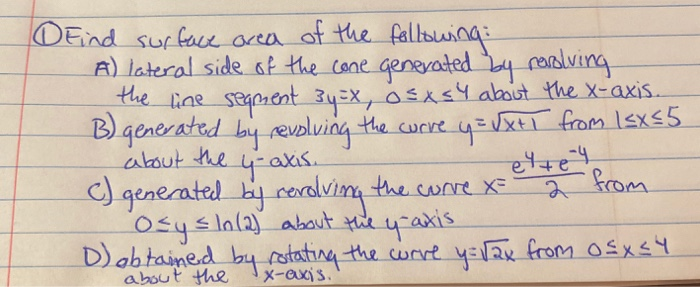 ① Find surface area of the following:
A) lateral side of the cone generated by revolving
the line segment 3y=x, 0≤x≤4 about the x-axis.
B) generated by revolving the curve y=√x+1 from 1≤x≤5
about the y-axis.
C) generated by revolving the curve x= (e^4+e^-4)/2 from
0≤y≤ln(2) about the y-axis
D) obtained by rotating the curve y=√2x from 0≤x≤4
about the x-axis.